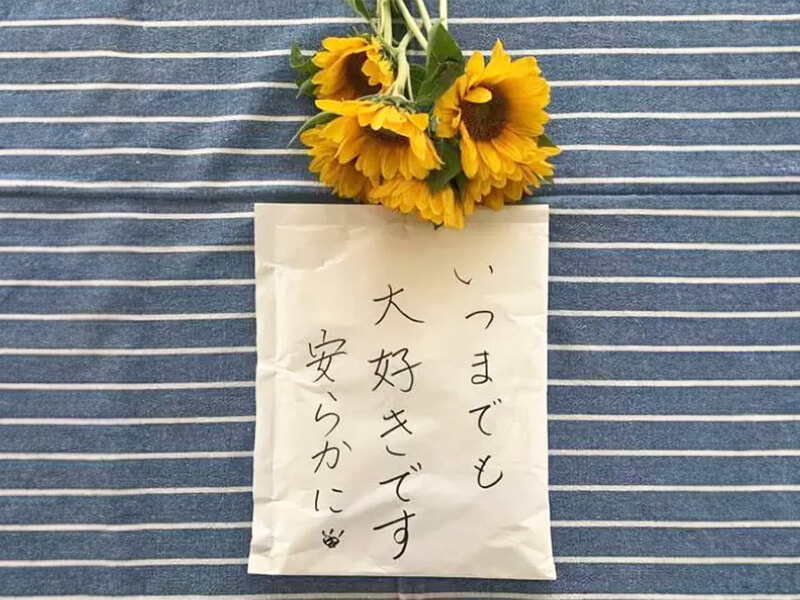 いつまでも
大好きです
安らかに